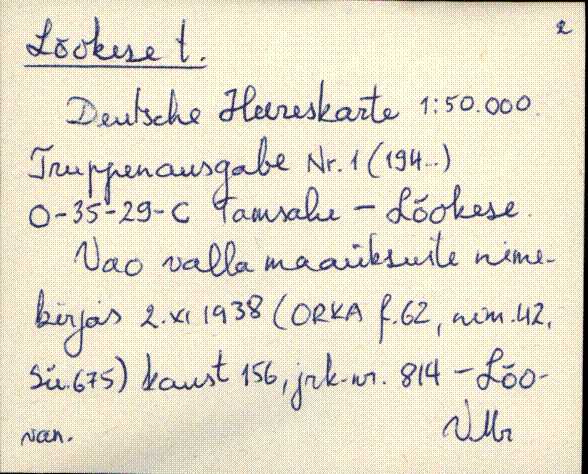 2
Lõokese t.
Deutsche Heereskarte 1:50.000.
Truppenausgabe Nr. 1 (194..)
O-35-29-C Tamsalu - Lõokese.
Vao valla maaüksuste nime-
kirjas 2.XI 1938 (ORKA f.62, nim.42,
sü.675) kaust 156, jrk-nr. 814 - Lõo-
van.
VMr